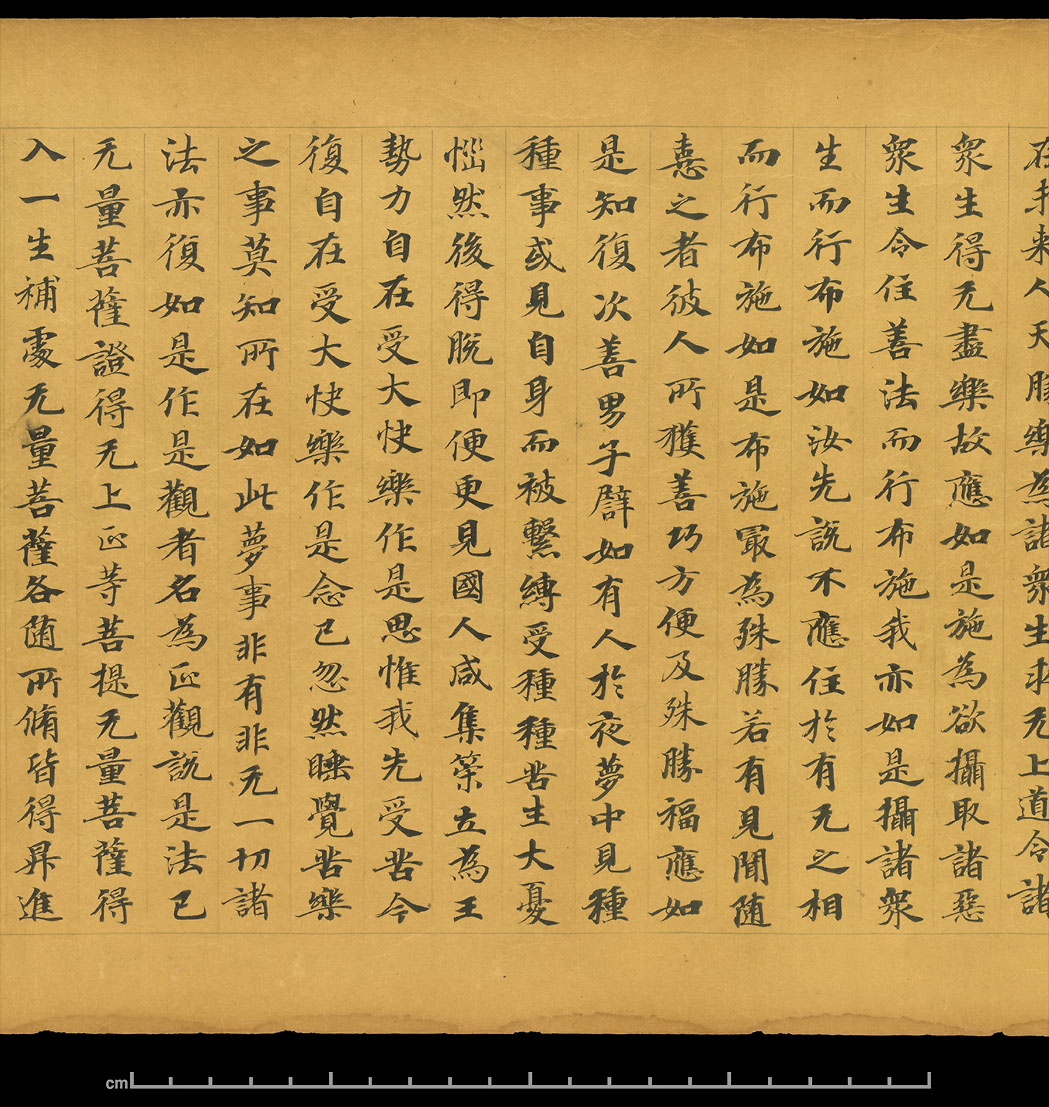 在未来人天勝樂為諸衆生求无上道令諸
衆生得无盡樂故應如是施為欲攝取諸惡
衆生令住善法而行布施我亦如是攝諸衆
生而行布施如汝先說不應住於有无之相
而行布施如是布施冣為殊勝若有見聞随
憙之者彼人所獲善巧方便及殊勝福應如
是知復次善男子辟如有人於夜夢中見種
種事或見自身而被繫縛受種種苦生大憂
惱然後得脫即便更見國人咸集策立為王
勢力自在受大快樂作是思惟我先受苦今
復自在受大快樂作是念已忽然睡覺苦樂
之事莫知所在如此夢事非有非无一切諸
法亦復如是作是觀者名為正觀說是法已
无量菩薩證得无上正等菩提无量菩薩得
入一生補處无量菩薩各随所脩皆得昇進
cm